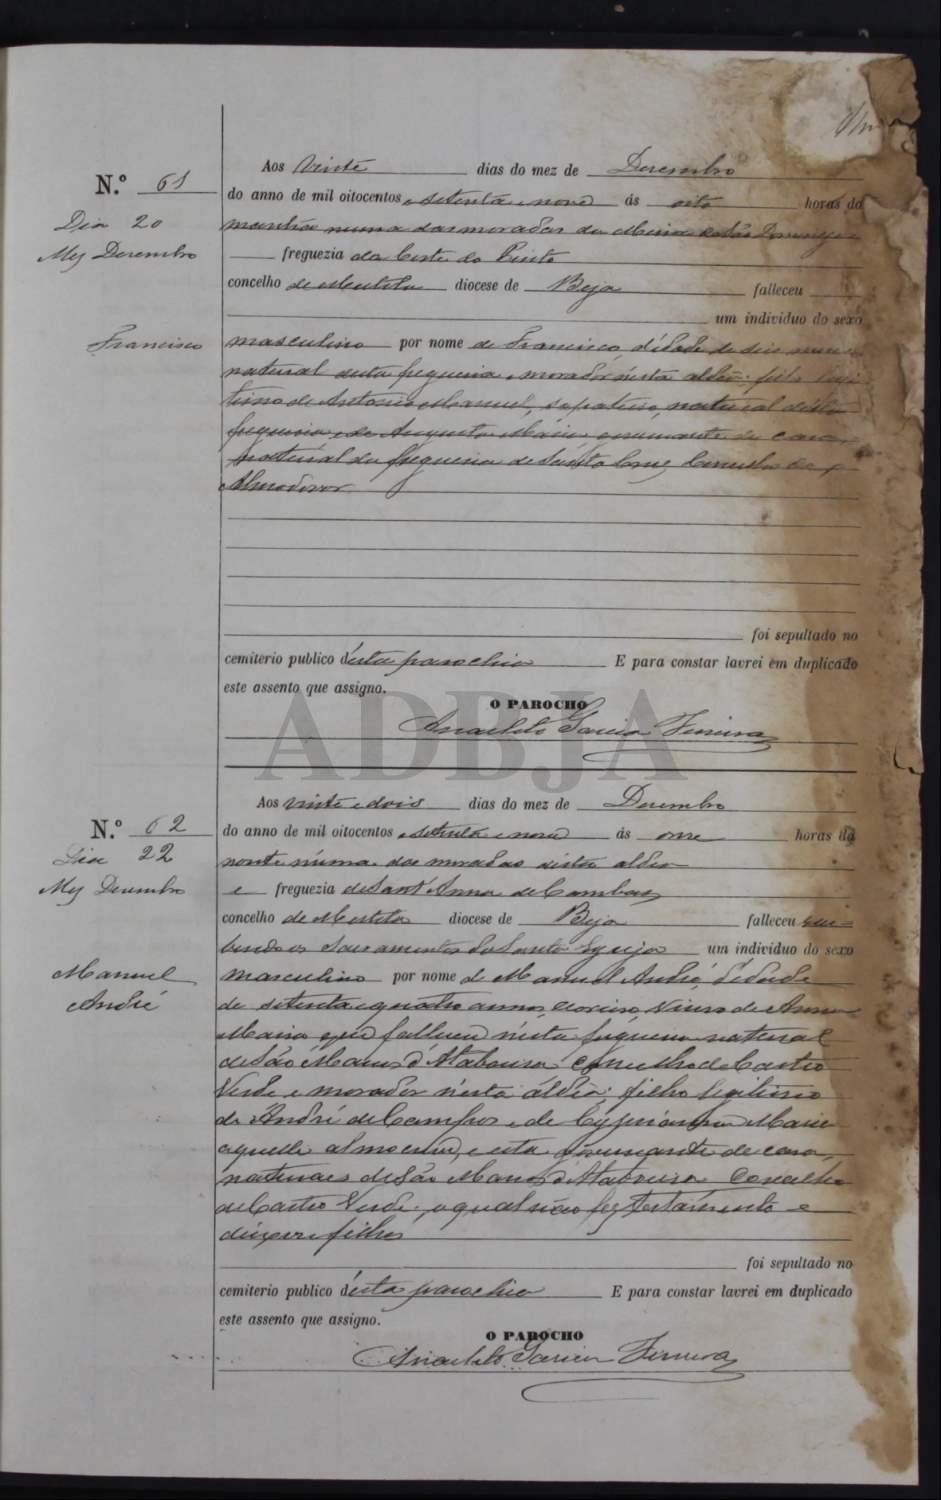 Aos vinte dias do mez de Desembro
N.º 61
do anno de mil oitocentos e setenta e nove ás oito horas da
Dia 20
manhã numa das moradas da Mina de São Domingos
Mez Desembro
freguezia da Corte do Pinto
concelho de Mertola diocese de Beja falleceu
um individuo do sexo
Francisco
masculino por nome de Francisco, d'idade de seis
natural desta freguesia e morador n'esta aldêa filho
de Antonio Manuel, sapateiro, natural desta
freguesia e de Augusta Maria governante de casa
natural da freguesia de Santa Cruz, Concelho de
Almodovar
foi sepultado no
cemiterio publico d'esta parochia E para constar lavrei em duplicado
este assento que assigno.
O PAROCHO
Anacleto Garcia Ferreira
ADBJA
Aos vinte e dois dias do mez de Desembro
N.º 62
do anno de mil oitocentos e setenta e nove ás onse horas da
Dia 22
noute n'uma das moradas desta aldêa
Mez Desembro
e freguezia de Sant'Anna de Cambas
concelho de Mertola diocese de Beja falleceu rece=
bendo os Sacramentos da Santa Egreja um individuo do sexo
Manuel
André
masculino por nome de Manuel André, d'edade
de setenta e quatro annos, viuvo de Anna
Maria que falleceu n'esta freguesia natural
de São Marcos d'Atabueira Concelho de Castro
Verde e morador n'esta aldêa; filho legitimo
de André de Campos e de Maria
aquelle almocreve, e esta governante de casa,
naturaes de São Marcos d'Atabueira Concelho
de Castro Verde, o qual não fez testamento e
deixou filhos
foi sepultado no
cemiterio publico d'esta parochia E para constar lavrei em duplicado
este assento que assigno.
O PAROCHO
Anacleto Garcia Ferreira